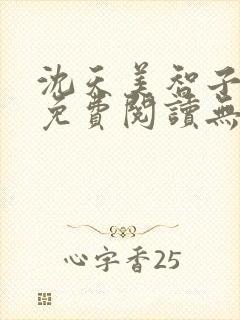 沈天美智子
免費閱讀無
心字香25